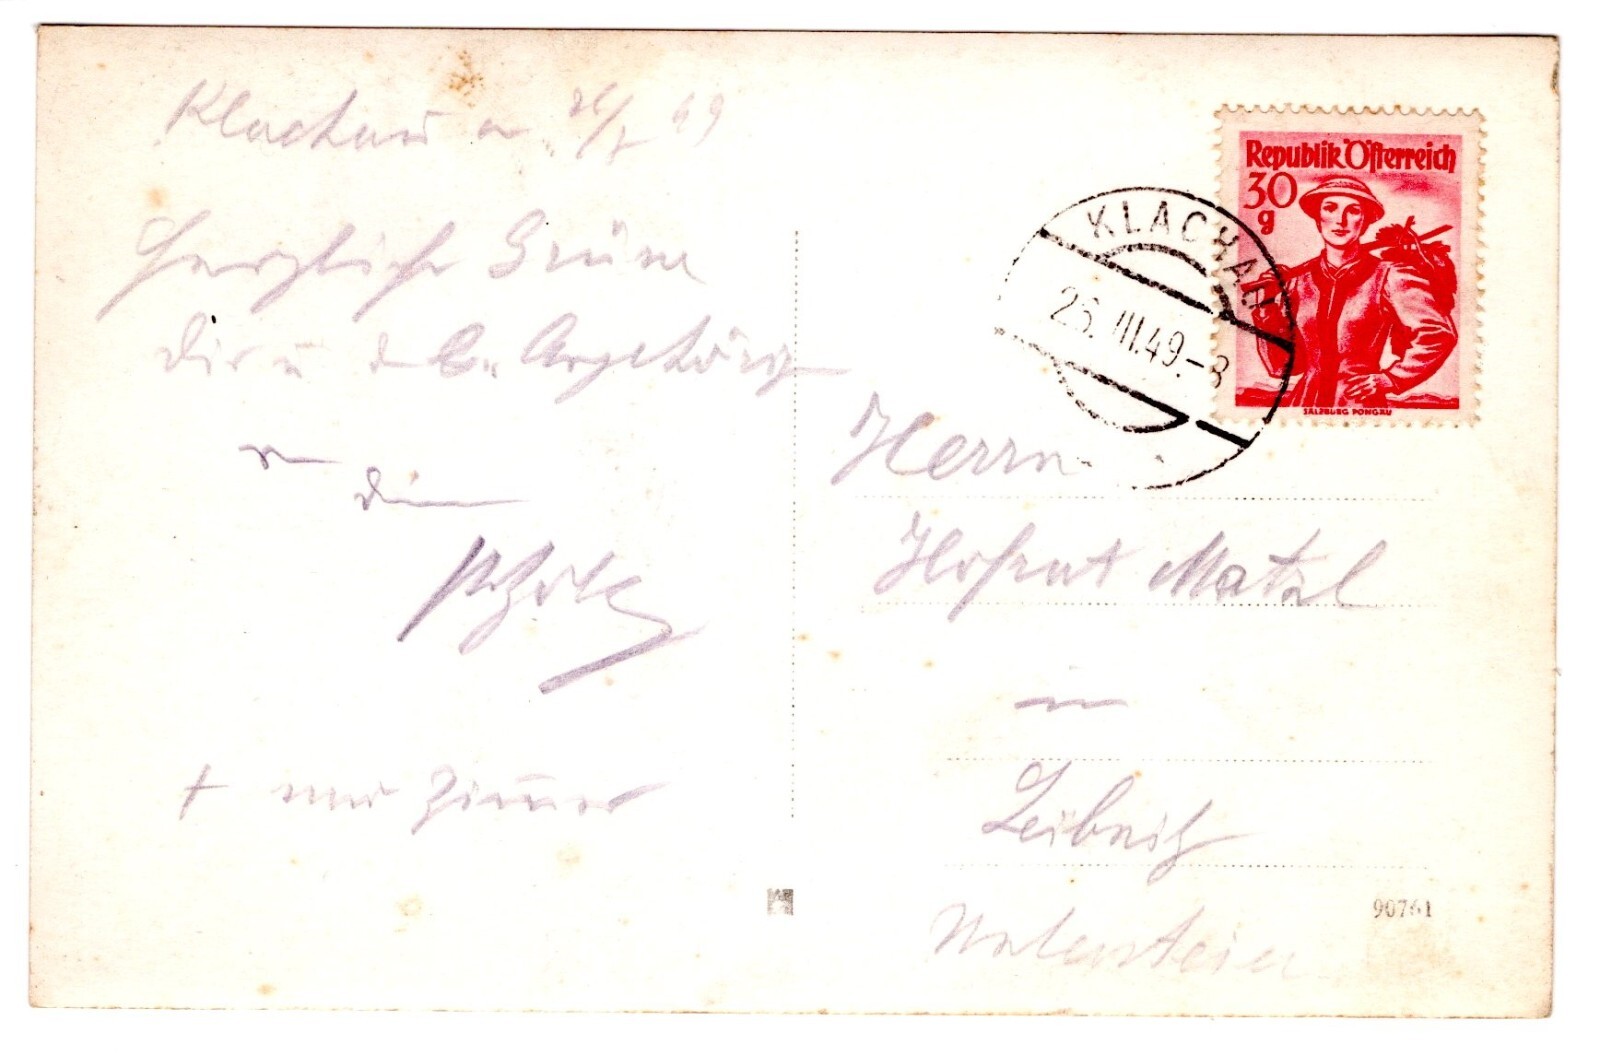 Klachau
49
Herzliche Grüsse
Dir u d. l. Angehörig
v
dein
+ nur Zimmer
Republik Österreich
30
g
SALZBURG PONGAU
KLACHAU
26. III. 49.-8
Herrn
Hofrat Matzl
in
Leibnitz
90761